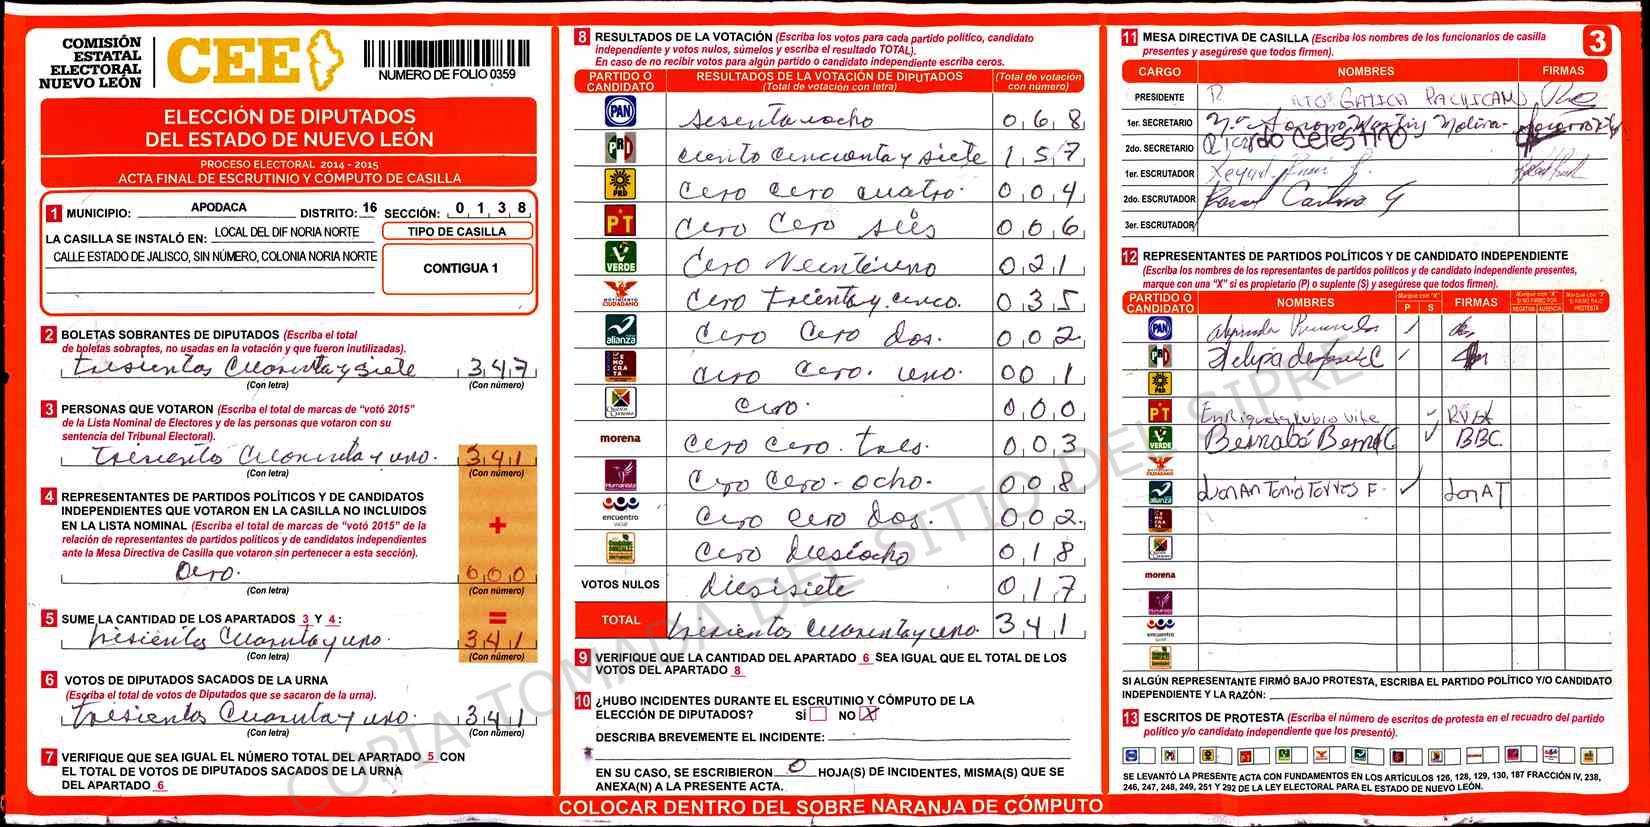 COMISIÓN
ESTATAL
ELECTORAL
NUEVO LEÓN
CEE
NUMERO DE FOLIO 0359
ELECCIÓN DE DIPUTADOS
DEL ESTADO DE NUEVO LEÓN
PROCESO ELECTORAL 2014 - 2015
ACTA FINAL DE ESCRUTINIO Y CÓMPUTO DE CASILLA
1 MUNICIPIO: APODACA DISTRITO: 16 SECCIÓN: 0 1 3 8
LA CASILLA SE INSTALÓ EN: LOCAL DEL DIF NORIA NORTE
CALLE ESTADO DE JALISCO, SIN NÚMERO, COLONIA NORIA NORTE
TIPO DE CASILLA
CONTIGUA 1
2 BOLETAS SOBRANTES DE DIPUTADOS (Escriba el total
de boletas sobrantes, no usadas en la votación y que fueron inutilizadas).
tresientos cuarenta y siete 3 4 7
(Con letra) (Con número)
3 PERSONAS QUE VOTARON (Escriba el total de marcas de "votó 2015"
de la Lista Nominal de Electores y de las personas que votaron con su
sentencia del Tribunal Electoral).
tresientos cuarenta y uno. 3 4 1
(Con letra) (Con número)
4 REPRESENTANTES DE PARTIDOS POLÍTICOS Y DE CANDIDATOS
INDEPENDIENTES QUE VOTARON EN LA CASILLA NO INCLUIDOS
EN LA LISTA NOMINAL (Escriba el total de marcas de "votó 2015" de la
relación de representantes de partidos políticos y de candidatos independientes
ante la Mesa Directiva de Casilla que votaron sin pertenecer a esta sección).
+
Cero. 0 0 0
(Con letra) (Con número)
5 SUME LA CANTIDAD DE LOS APARTADOS 3 Y 4: =
tresientos cuarenta y uno. 3 4 1
(Con letra) (Con número)
6 VOTOS DE DIPUTADOS SACADOS DE LA URNA
(Escriba el total de votos de Diputados que se sacaron de la urna).
tresientos cuarenta y uno. 3 4 1
(Con letra) (Con número)
7 VERIFIQUE QUE SEA IGUAL EL NÚMERO TOTAL DEL APARTADO 5 CON
EL TOTAL DE VOTOS DE DIPUTADOS SACADOS DE LA URNA
DEL APARTADO 6
8 RESULTADOS DE LA VOTACIÓN (Escriba los votos para cada partido político, candidato
independiente y votos nulos, súmelos y escriba el resultado TOTAL).
En caso de no recibir votos para algún partido o candidato independiente escriba ceros.
PARTIDO O CANDIDATO RESULTADOS DE LA VOTACIÓN DE DIPUTADOS (Total de votación con letra) (Total de votación con número)
PAN sesenta y ocho 0 6 8
PRD ciento cincuenta y siete 1 5 7
PRD cero cero cuatro. 0 0 4
PT cero cero seis 0 0 6
VERDE cero veintiuno 0 2 1
MOVIMIENTO CIUDADANO cero treinta y cinco. 0 3 5
alianza cero cero dos. 0 0 2
DEMOCRATA cero cero. uno. 0 0 1
cero. 0 0 0
morena cero cero. tres. 0 0 3
Humanista cero cero - ocho. 0 0 8
encuentro social cero cero dos. 0 0 2.
cero diesiocho 0 1 8
VOTOS NULOS diesisiete 0 1 7
TOTAL tresientos cuarenta y uno. 3 4 1
9 VERIFIQUE QUE LA CANTIDAD DEL APARTADO 6 SEA IGUAL QUE EL TOTAL DE LOS
VOTOS DEL APARTADO 8
10 ¿HUBO INCIDENTES DURANTE EL ESCRUTINIO Y CÓMPUTO DE LA
ELECCIÓN DE DIPUTADOS? SÍ NO X
DESCRIBA BREVEMENTE EL INCIDENTE:
EN SU CASO, SE ESCRIBIERON 0 HOJA(S) DE INCIDENTES, MISMA(S) QUE SE
ANEXA(N) A LA PRESENTE ACTA.
COLOCAR DENTRO DEL SOBRE NARANJA DE CÓMPUTO
11 MESA DIRECTIVA DE CASILLA (Escriba los nombres de los funcionarios de casilla
presentes y asegúrese que todos firmen).
3
CARGO NOMBRES FIRMAS
PRESIDENTE
1er. SECRETARIO
2do. SECRETARIO Ricardo Celestino
1er. ESCRUTADOR
2do. ESCRUTADOR
3er. ESCRUTADOR
12 REPRESENTANTES DE PARTIDOS POLÍTICOS Y DE CANDIDATO INDEPENDIENTE
(Escriba los nombres de los representantes de partidos políticos y de candidato independiente presentes,
marque con una "X" si es propietario (P) o suplente (S) y asegúrese que todos firmen).
PARTIDO O CANDIDATO NOMBRES Marque con "X" P S FIRMAS
PAN
PRD
PRD
PT
VERDE Bernabé BBC.
alianza
morena
encuentro
SI ALGÚN REPRESENTANTE FIRMÓ BAJO PROTESTA, ESCRIBA EL PARTIDO POLÍTICO Y/O CANDIDATO
INDEPENDIENTE Y LA RAZÓN:
13 ESCRITOS DE PROTESTA (Escriba el número de escritos de protesta en el recuadro del partido
político y/o candidato independiente que los presentó).
SE LEVANTÓ LA PRESENTE ACTA CON FUNDAMENTOS EN LOS ARTÍCULOS 126, 128, 129, 130, 187 FRACCIÓN IV, 238,
246, 247, 248, 249, 251 Y 292 DE LA LEY ELECTORAL PARA EL ESTADO DE NUEVO LEÓN.
COPIA TOMADA DEL SITIO DEL SIPRE